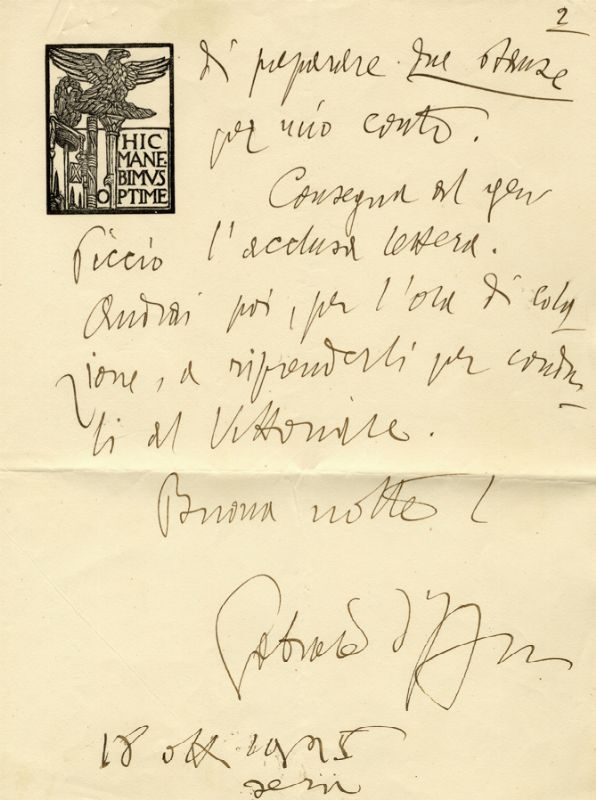 2
HIC
MANE
BIMVS
OPTIME
di preparare due stanze
per mio conto.
Consegna al gen
Piccio l'acclusa lettera.
Andrai poi, per l'ora di cola
zione, a riprenderli per condur
li al Vittoriale.
Buona notte!
Gabriele d'Annunzio
18 ott 1925
sera